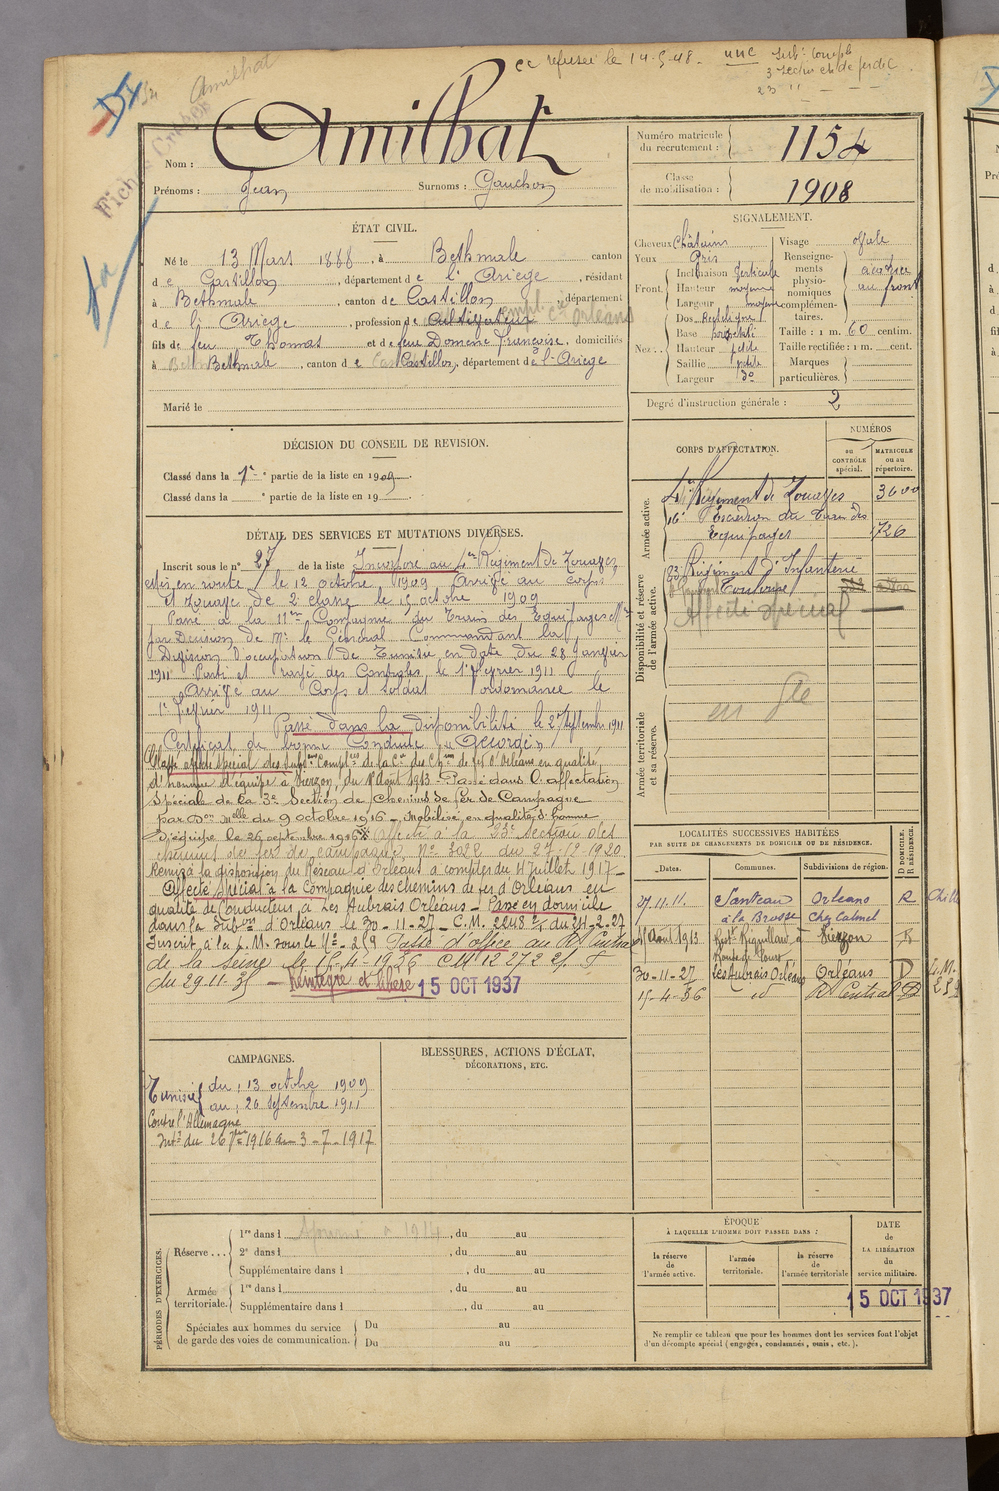 Amilhat
cc refusée le 14-5-48.
Nom : Amilhat
Prénoms : Jean Surnoms : Gauchon
Numéro matricule du recrutement : 1154
Classe de mobilisation : 1908
ÉTAT CIVIL.
Né le 13 Mars 1888, à Bethmale canton
de Castillon, département de l'Ariège, résidant
à Bethmale, canton de Castillon, département
de l'Ariège, profession de cultivateur empl. Cie Orléans
fils de feu Thomas et de feue Domenc Françoise, domiciliés
à Bethmale, canton de Castillon, département de l'Ariège
Marié le
SIGNALEMENT.
Cheveux Châtains
Yeux Gris
Front. Inclinaison Verticale
Hauteur moyenne
Largeur moyenne
Nez... Dos Rectiligne
Base horizontale
Hauteur petite
Saillie petite
Largeur
Visage ovale
Renseignements physionomiques complémentaires. au front
Taille : 1 m. 60 centim.
Taille rectifiée : 1 m. cent.
Marques particulières.
Degré d'instruction générale : 2
DÉCISION DU CONSEIL DE REVISION.
Classé dans la 1re partie de la liste en 1909
Classé dans la e partie de la liste en 19
DÉTAIL DES SERVICES ET MUTATIONS DIVERSES.
Inscrit sous le n° 27 de la liste Incorporé au 4e Régiment de Zouaves
mis en route le 12 octobre 1909 Arrivé au corps
et Zouave de 2e classe le 15 octobre 1909
Passé à la 11me Compagnie du Train des Equipages Mres
par Décision de Mr le Général Commandant la
Division d'occupation de Tunisie en date du 28 Janvier
1911 Parti et rayé des Contrôles le 1er Février 1911
Arrivé au Corps et soldat ordonnance le
1er Février 1911
Passé dans la disponibilité le 27 Septembre 1911
Certificat de bonne Conduite "Accordé"
Classé affecté spécial des subdons Compltres de la Cie des Chins de fer d'Orléans en qualité
d'homme d'équipe à Vierzon, du 1er Août 1913 - Passé dans l'affectation
spéciale de la 3e Section de Chemins de fer de Campagne
par Don Melle du 9 octobre 1916 - Mobilisé en qualité d'homme
d'équipe le 26 septembre 1916 Affecté à la 23e section des
chemins de fer de campagne, No 3022 du 27-12-1920
Remis à la disposition du Réseau d'Orléans à compter du 4 Juillet 1917 -
Affecté Spécial à la Compagnie des chemins de fer d'Orléans en
qualité de Conducteur à Les Aubrais Orléans - Passé en domicile
dans la Subon d'Orléans le 30-11-27 - C.M. 2248 2/1 du 24-2-27
Inscrit à la p. M. sous le No - 259 Passé d'office au Rt Central
de la Seine le 15-4-1936 CM 12272 2/1 F
du 29-11-35 - Réintégré et libéré 15 OCT 1937
CORPS D'AFFECTATION.
NUMÉROS
au CONTRÔLE spécial.
MATRICULE ou au répertoire.
Armée active.
4e Régiment de Zouaves 3600
16e Escadron du Train des
Equipages 1726
Disponibilité et réserve de l'armée active.
Régiment d'Infanterie
Toulouse
Affecté spécial
Armée territoriale et sa réserve.
LOCALITÉS SUCCESSIVES HABITÉES
PAR SUITE DE CHANGEMENTS DE DOMICILE OU DE RÉSIDENCE.
Dates. Communes. Subdivisions de région. D DOMICILE. R RÉSIDENCE.
27.11.11. Santeau Orléans R
à la Brosse chez Cabnel
1er Août 1913 Vierzon R
30-11-27 Les Aubrais Orléans Orléans D
15-4-36 id R Central D
CAMPAGNES.
Tunisie du 13 octobre 1909
au 26 Septembre 1911
Contre l'Allemagne
Intr du 26 7bre 1916 au 3-7-1917
BLESSURES, ACTIONS D'ÉCLAT,
DÉCORATIONS, ETC.
PÉRIODES D'EXERCICES.
Réserve... 1re dans l Ajourné à 1914, du au
2e dans l , du au
Supplémentaire dans l , du au
Armée territoriale. 1re dans l , du au
Supplémentaire dans l , du au
Spéciales aux hommes du service Du au
de garde des voies de communication. Du au
ÉPOQUE
À LAQUELLE L'HOMME DOIT PASSER DANS :
la réserve de l'armée active.
l'armée territoriale.
la réserve de l'armée territoriale
DATE
de
LA LIBÉRATION
du
service militaire.
15 OCT 1937
Ne remplir ce tableau que pour les hommes dont les services font l'objet
d'un décompte spécial (engagés, condamnés, omis, etc.).